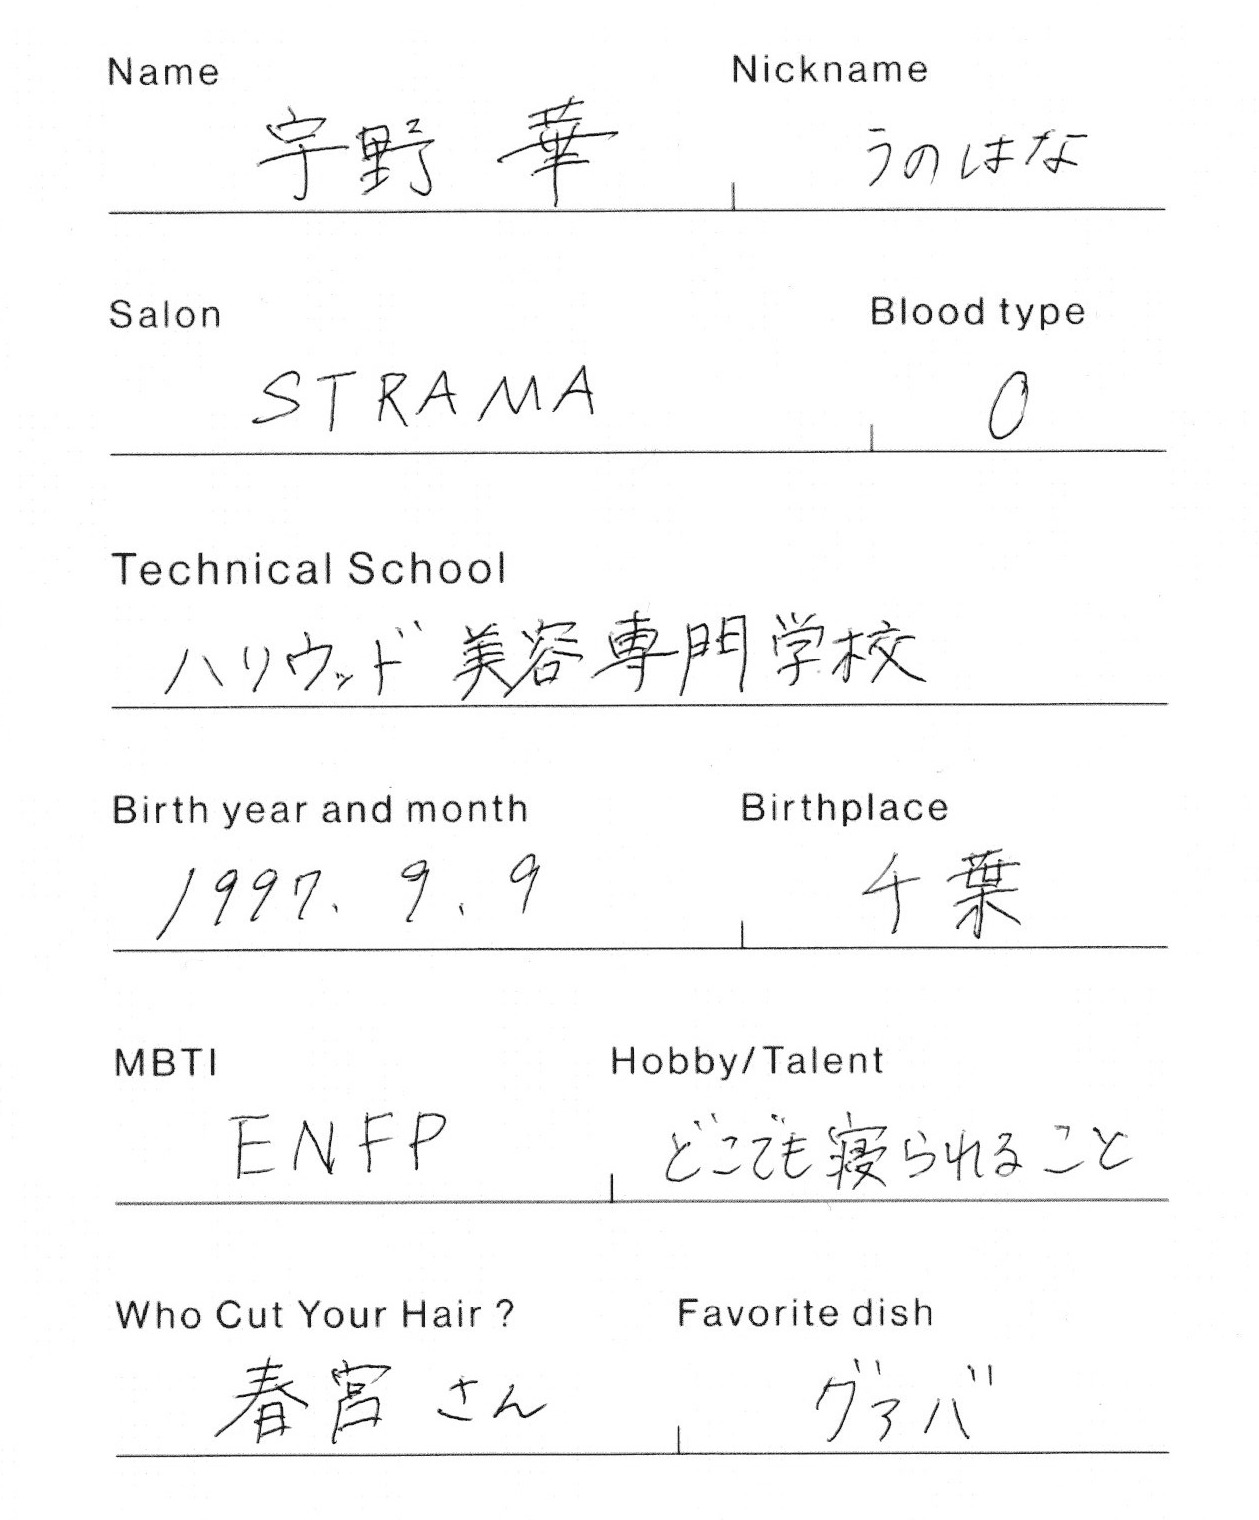 Name Nickname
宇野 華 うのはな
Salon Blood type
STRAMA O
Technical School
ハリウッド美容専門学校
Birth year and month Birthplace
1997. 9. 9 千葉
MBTI Hobby/Talent
ENFP どこでも寝られること
Who Cut Your Hair? Favorite dish
春宮さん グァバ